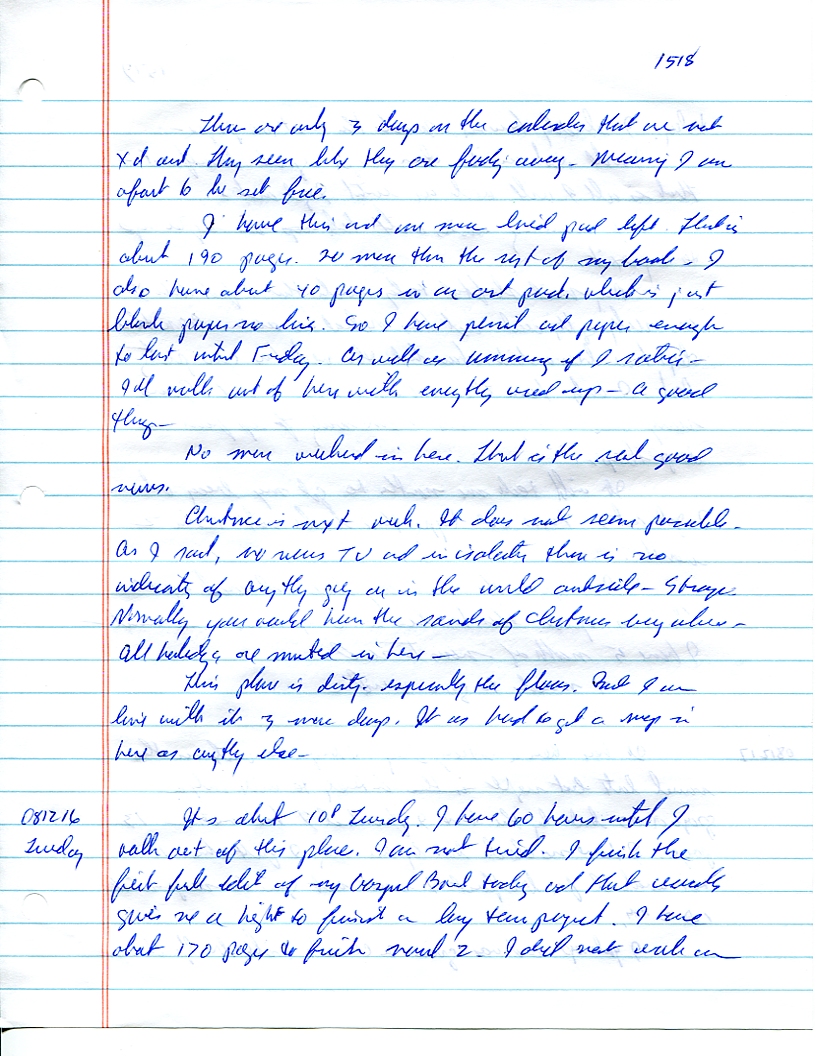 1518
There are only 3 days on the calendar that are not
X'd out. They seem like they are fading away - meaning I am
about to be set free.
I have this and one more lined pad left. That is
about 190 pages. 20 more then the rest of my book - I
also have about 40 pages in an art pad, which is just
blank paper no lines. So I have pencil and paper enough
to last until Friday. As well as of I
I'll walk out of here with everything used up - a good
thing -
No more weekend in here. That is the real good
news.
Christmas is next week. It does not seem possible -
As I said, no news TV and in isolation there is no
indication of anything going on in the world outside - strange.
Normally you would hear the sounds of Christmas everywhere -
All holidays are muted in here -
This place is dirty. especially the floors. But I can
live with it 3 more days. It as hard to get a mop in
here as anything else -
081216
Tuesday
It's about 10P Tuesday. I have 60 hours until I
walk out of this place. I am not tired. I finish the
first full edit of my Gospel Book today and that usually
gives me a hight to finish a long term project. I have
about 170 pages to finish round 2. I did not work on